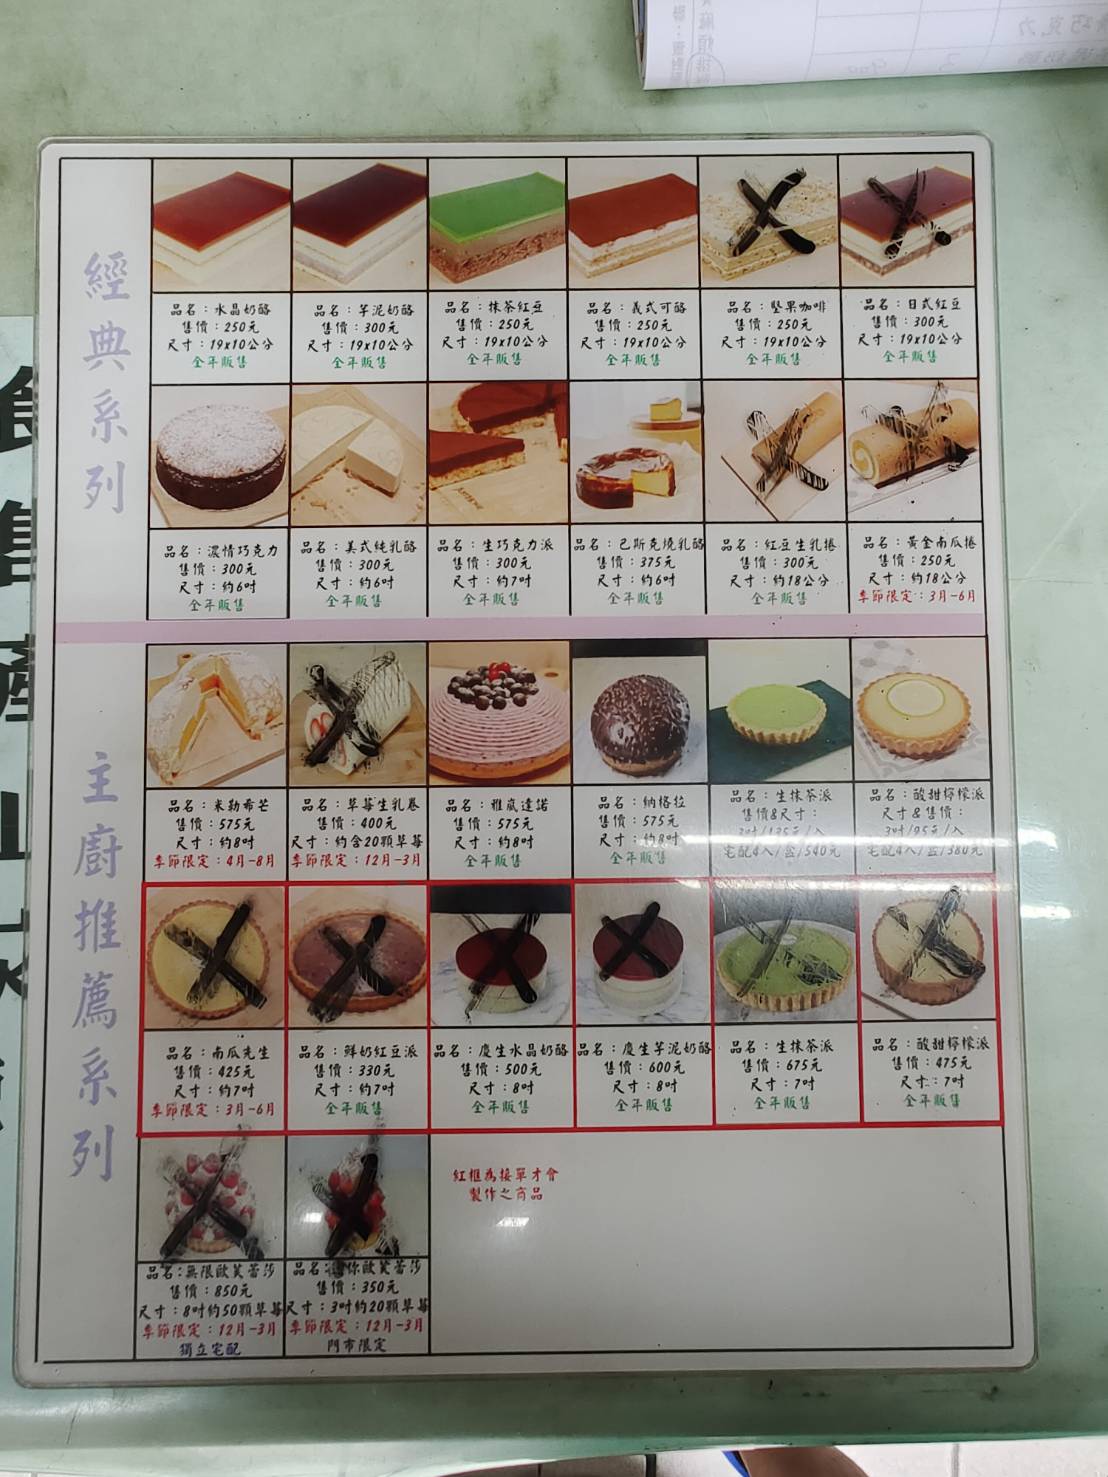 經典系列
品名：水晶奶酪
售價：250元
尺寸：19x10公分
全年販售
品名：芋泥奶酪
售價：300元
尺寸：19x10公分
全年販售
品名：抹茶紅豆
售價：250元
尺寸：19x10公分
全年販售
品名：義式可酪
售價：250元
尺寸：19x10公分
全年販售
品名：堅果咖啡
售價：250元
尺寸：19x10公分
全年販售
品名：日式紅豆
售價：300元
尺寸：19x10公分
全年販售
品名：濃情巧克力
售價：300元
尺寸：約6吋
全年販售
品名：美式純乳酪
售價：300元
尺寸：約6吋
全年販售
品名：生巧克力派
售價：300元
尺寸：約7吋
全年販售
品名：巴斯克燒乳酪
售價：375元
尺寸：約6吋
全年販售
品名：紅豆生乳捲
售價：300元
尺寸：約18公分
全年販售
品名：黃金南瓜捲
售價：250元
尺寸：約18公分
季節限定：3月-6月
主廚推薦系列
品名：米勒希芒
售價：575元
尺寸：約8吋
季節限定：4月-8月
品名：草莓生乳卷
售價：400元
尺寸：約含20顆草莓
季節限定：12月-3月
品名：雅嵐達諾
售價：575元
尺寸：約8吋
全年販售
品名：納格拉
售價：575元
尺寸：約8吋
全年販售
品名：生抹茶派
售價&尺寸：
3吋/135元/入
宅配4入/盒/540元
品名：酸甜檸檬派
尺寸&售價：
3吋/95元/入
宅配4入/盒/380元
品名：南瓜先生
售價：425元
尺寸：約7吋
季節限定：3月-6月
品名：鮮奶紅豆派
售價：330元
尺寸：約7吋
全年販售
品名：慶生水晶奶酪
售價：500元
尺寸：8吋
全年販售
品名：慶生芋泥奶酪
售價：600元
尺寸：8吋
全年販售
品名：生抹茶派
售價：675元
尺寸：7吋
全年販售
品名：酸甜檸檬派
售價：475元
尺寸：7吋
全年販售
品名：無限歐芙蕾莎
售價：850元
尺寸：8吋約50顆草莓
季節限定：12月-3月
獨立宅配
品名：你歐芙蕾莎
售價：350元
尺寸：3吋約20顆草莓
季節限定：12月-3月
門市限定
紅框為接單才會
製作之商品